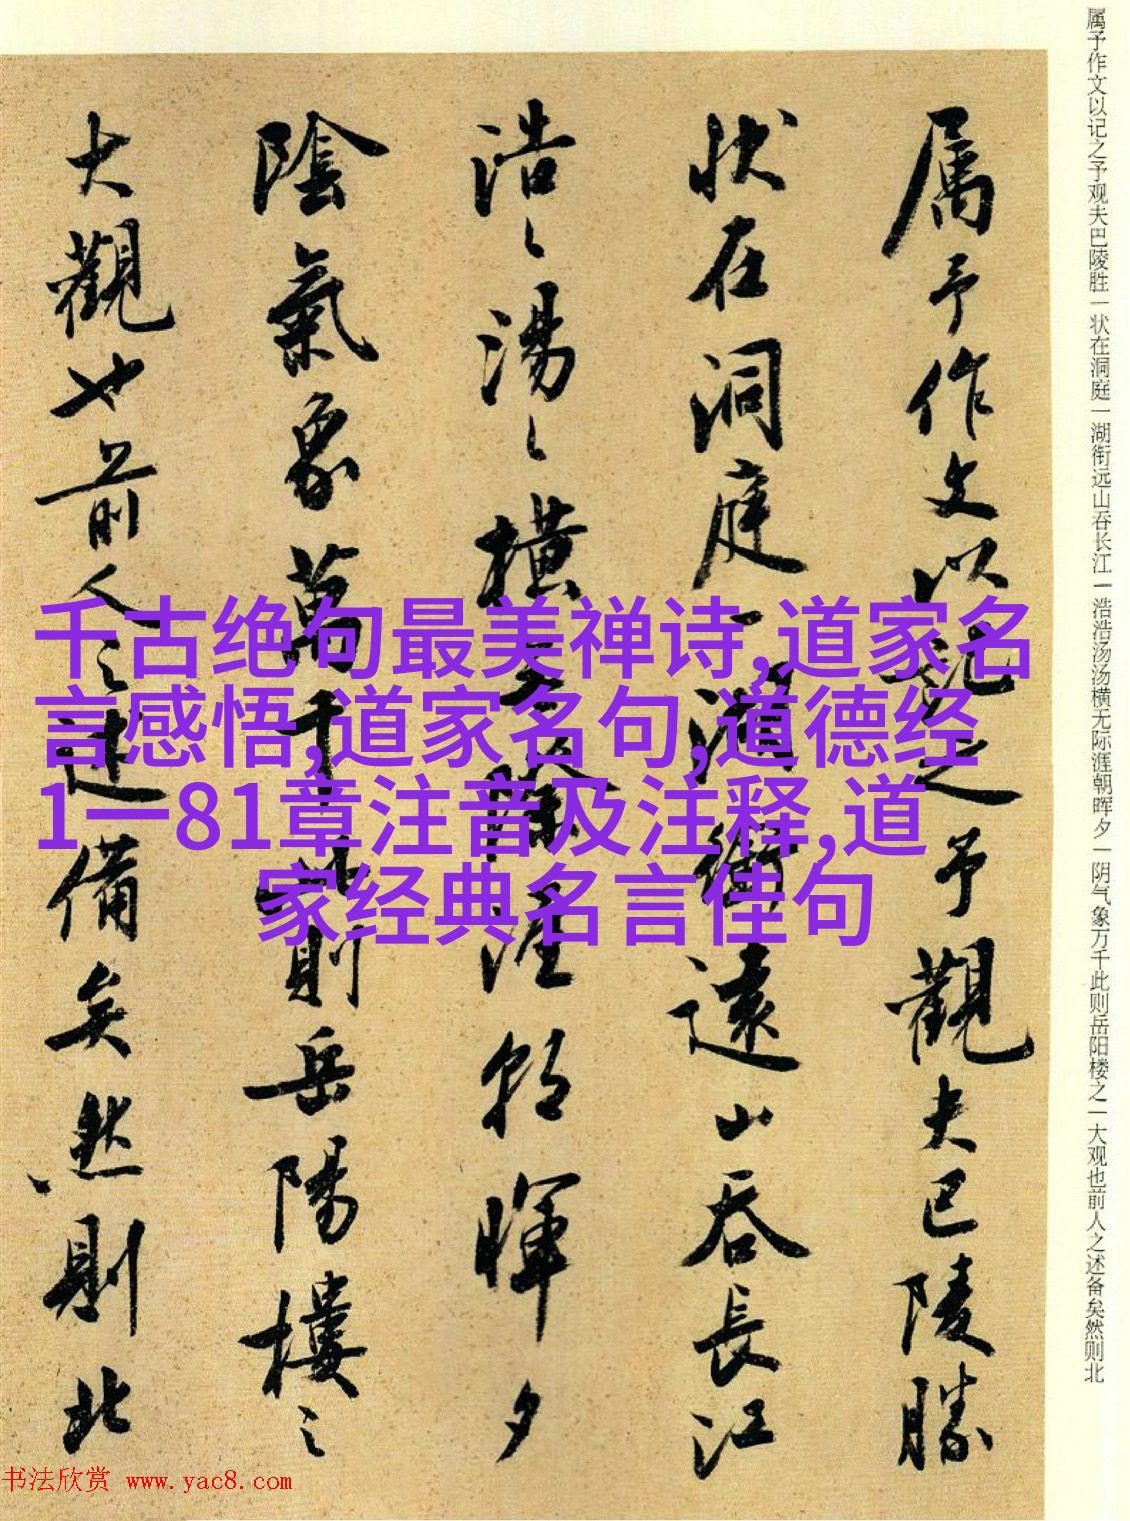 属予作文以记之予观夫巴陵胜一状在洞庭一湖衔远山吞长江一浩浩汤汤横无际涯朝晖夕一阴气象万千此则岳阳楼之一大观也前人之述备矣然则北
属予作文以記之予觀夫巴陵勝
状在洞庭一湖銜遠山吞長江
浩〻湯〻橫無際涯朝暉夕
陰氣象萬千此則岳陽樓之
大觀也前人之述備矣然則北
千古绝句最美禅诗,道家名
言感悟,道家名句,道德经
1一81章注音及注释,道
家经典名言佳句
书法欣赏 www.yac8.com